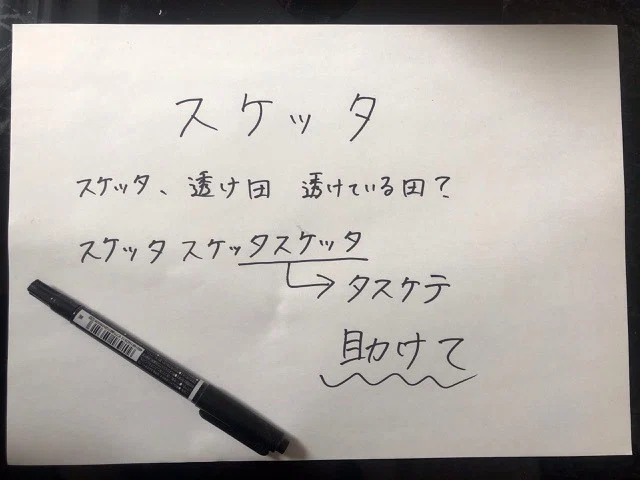 スケッタ
スケッタ、透け田 透けている田?
スケッタ スケッタスケッタ
タスケテ
助けて